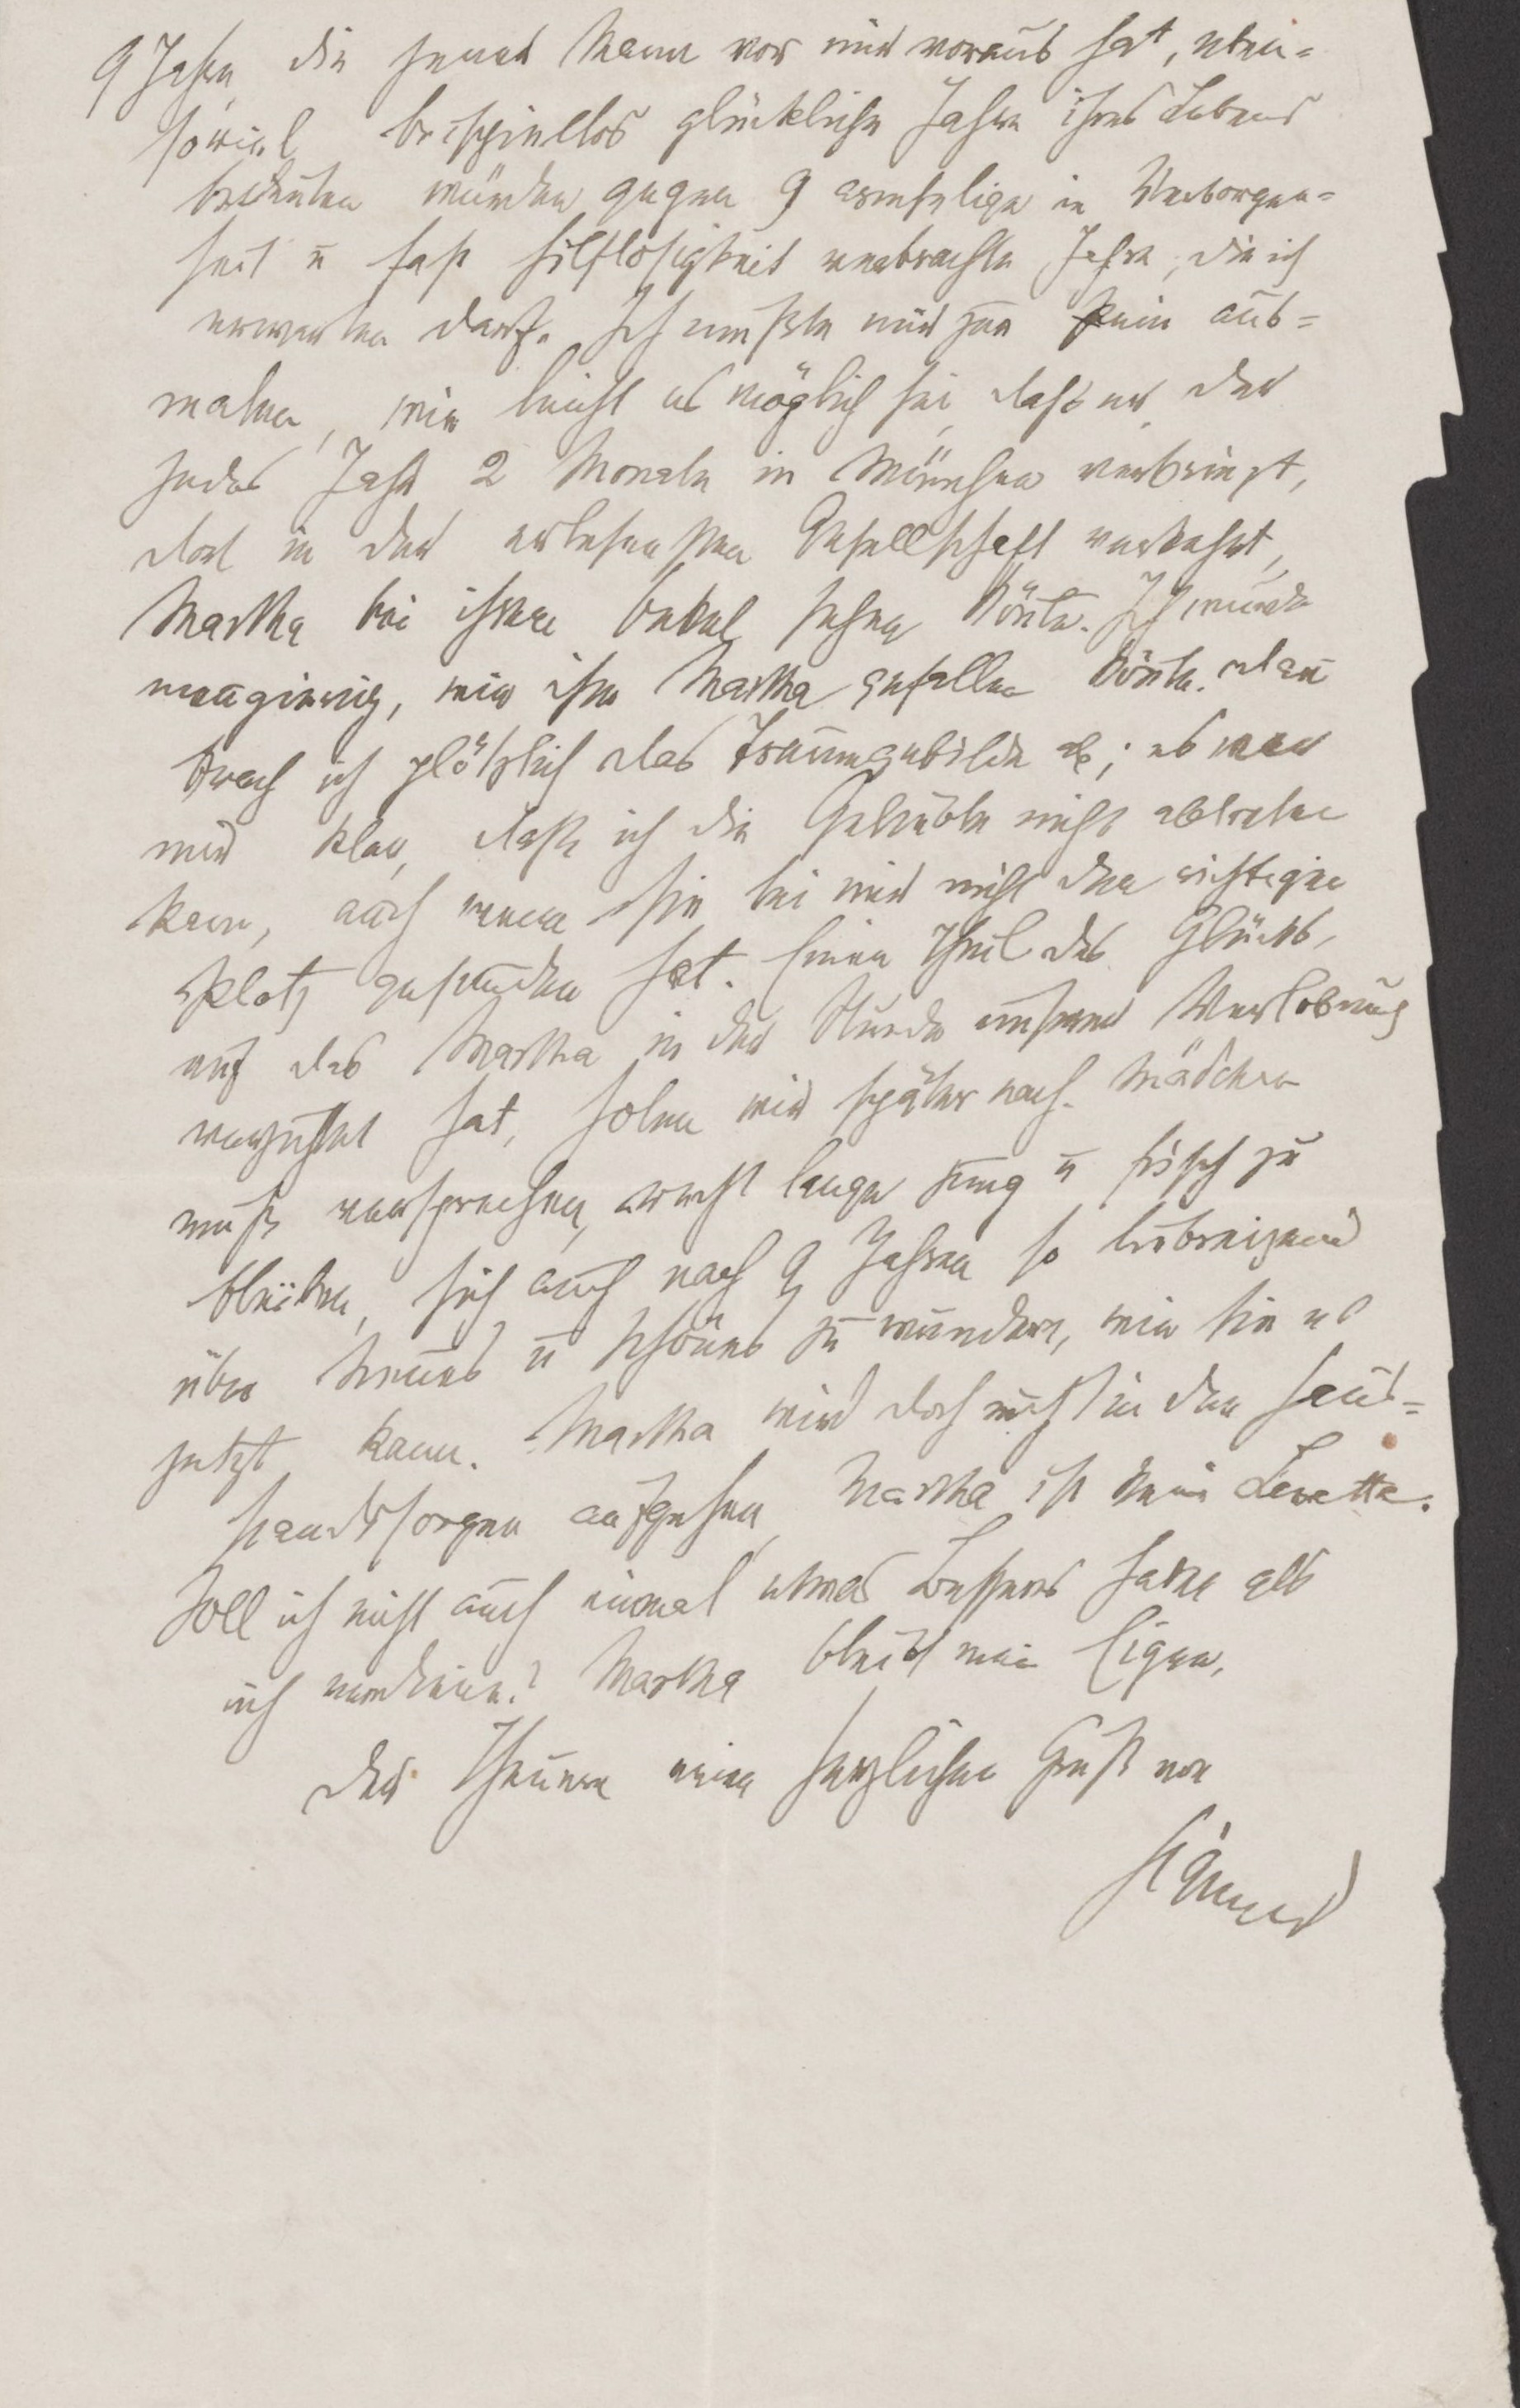 9 Jahre, die jener Mann vor mir voraus hat, eben=
soviel beispiellos glückliche Jahre ihres Lebens
bedeuten würden gegen 9 armselige in Verborgen=
heit u fast Hilflosigkeit verbrachte Jahre, die ich
erwarten darf. Ich mußte mir zur Pein aus=
malen, wie leicht es möglich sei, daß er, der
jedes Jahr 2 Monate in München verbringt,
dort in der erlesensten Gesellschaft verkehrt,
Martha bei ihrem Onkel sehen könte. Ich wurde
neugierig, wie ihm Martha gefallen könte. dan
brach ich plötzlich das Traumgebilde ab; es war
mir klar, daß ich die Geliebte nicht abtreten
kann, auch wenn sie bei mir nicht den richtigen
Platz gefunden hat. Einen Theil des Glücks,
auf das Martha in der Stunde unserer Verlobung
verzichtet hat, holen wir später nach. Mädchen
muß versprechen, recht lange jung u frisch zu
bleiben, sich auch nach 9 Jahren so liebreizend
über Neues u Schönes zu wundern, wie sie es
jetzt kann. Martha wird doch nicht in den Haus=
standssorgen aufgehen, Martha ist keine Lisette.
Soll ich nicht auch einmal etwas Besseres haben als
ich verdiene? Martha bleibt mein Eigen.
Der Theuren einen herzlichen Gruß von
Sigmund